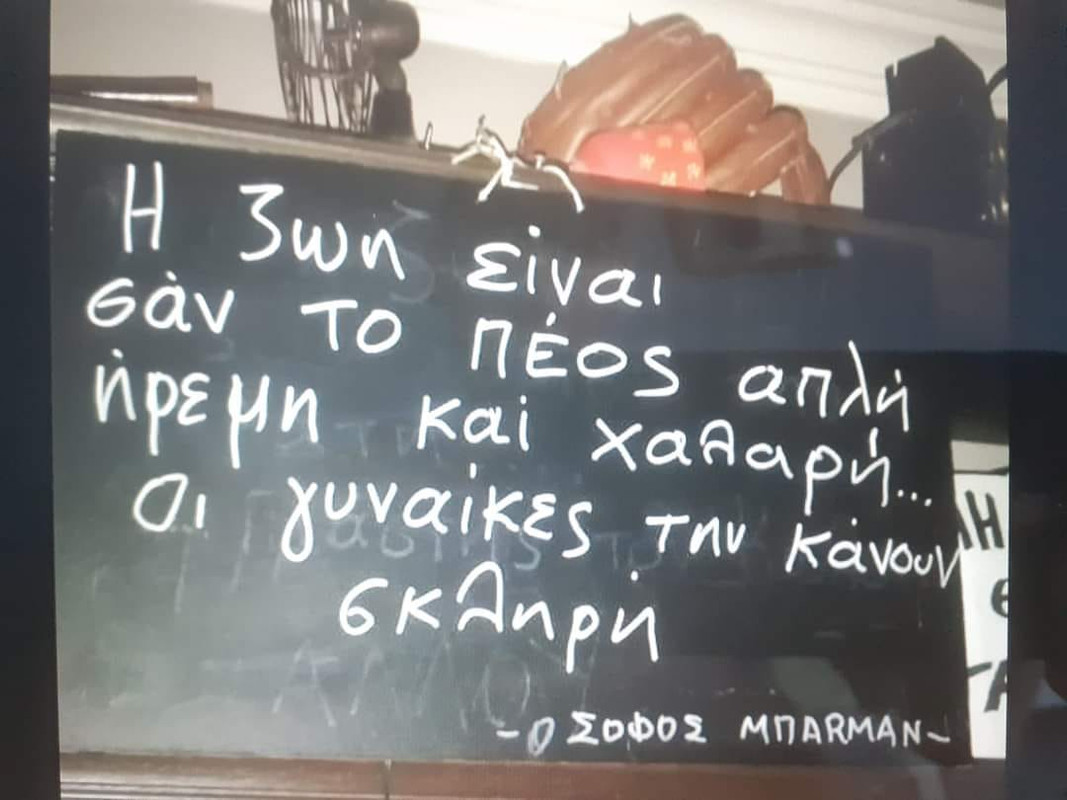 Η ζωη είναι
σὰν το ΠΈΟς απλή
ήρεμη και χαλαρή...
Οι γυναίκες την κάνουν
σκληρή
-Ο ΣΟΦΟΣ ΜΠΑRMAN-